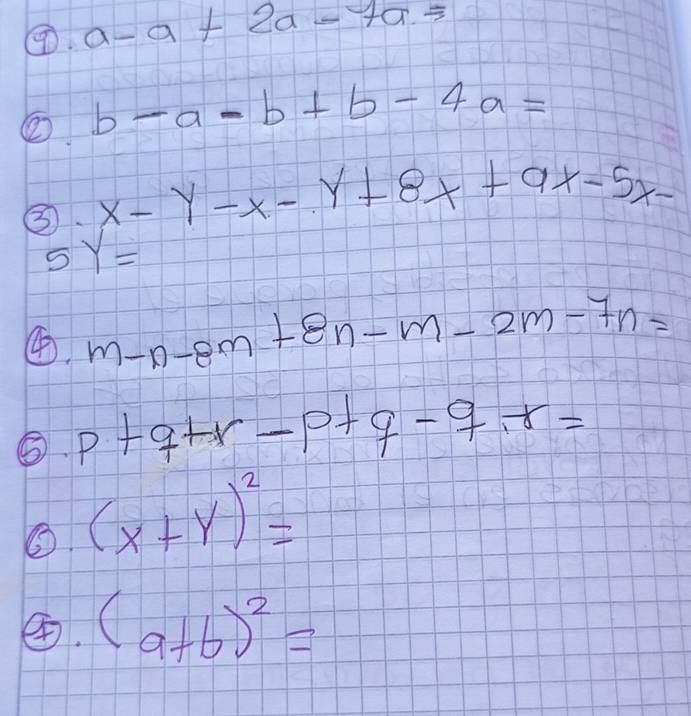 ①. a-a+2a-7a=
②. b-a-b+b-4a=
③. x-y-x-y+8x+9x-5x-
5y=
④. m-n-8m+8n-m-2m-7n=
⑤. p+q+r-p+q-q.r=
⑥. (x+y)²=
⑦. (a+b)²=